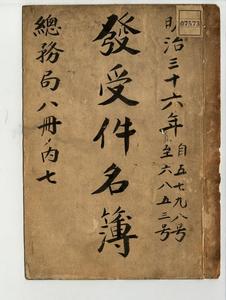 07573
明治三十六年
自五七九八号
至六八五三号
發受件名簿
總務局八冊ノ内七